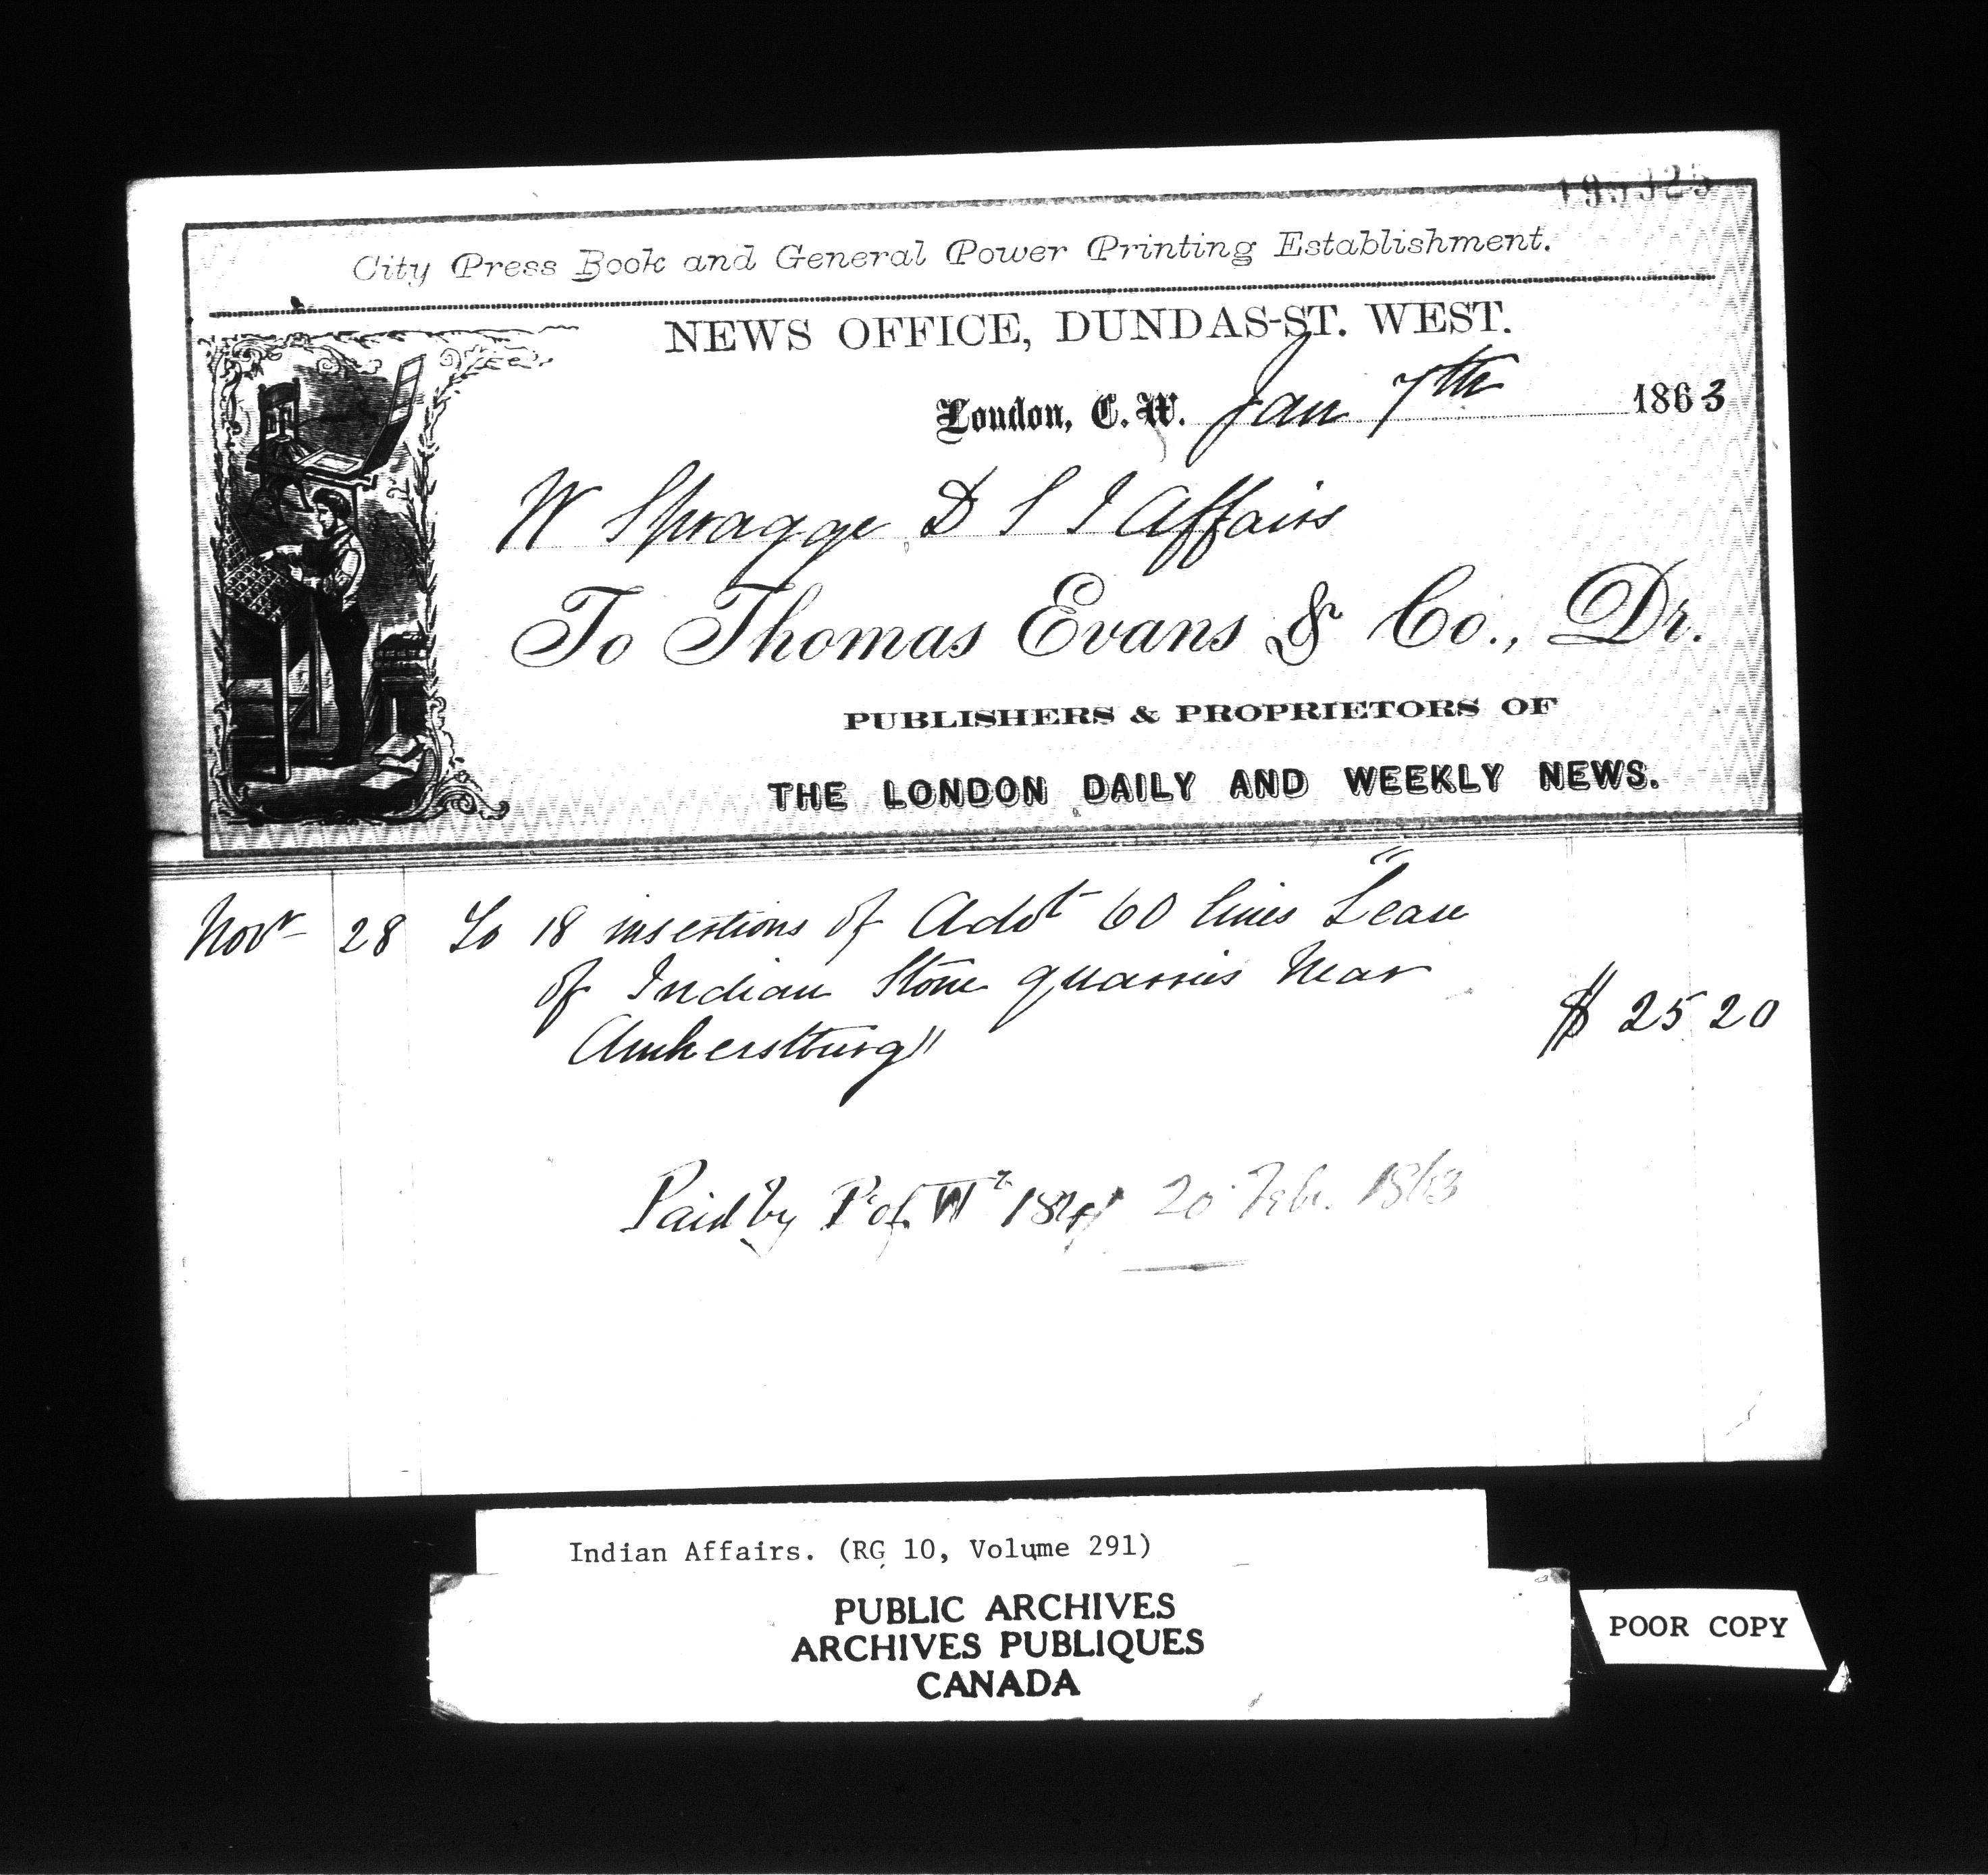 City Press Book and General Power Printing Establishment.
NEWS OFFICE, DUNDAS-ST. WEST.
London, C. W. Jan 7th 1863
W Spragge D S I Affairs
To Thomas Evans & Co., Dr.
PUBLISHERS & PROPRIETORS OF
THE LONDON DAILY AND WEEKLY NEWS.
Novr 28 To 18 insertions of Advt 60 lines "Lease
of Indian Stone quarries Near
Amherstburg" $ 25 20
Paid by 20 Feby. 1863
Indian Affairs. (RG 10, Volume 291)
PUBLIC ARCHIVES
ARCHIVES PUBLIQUES
CANADA
POOR COPY